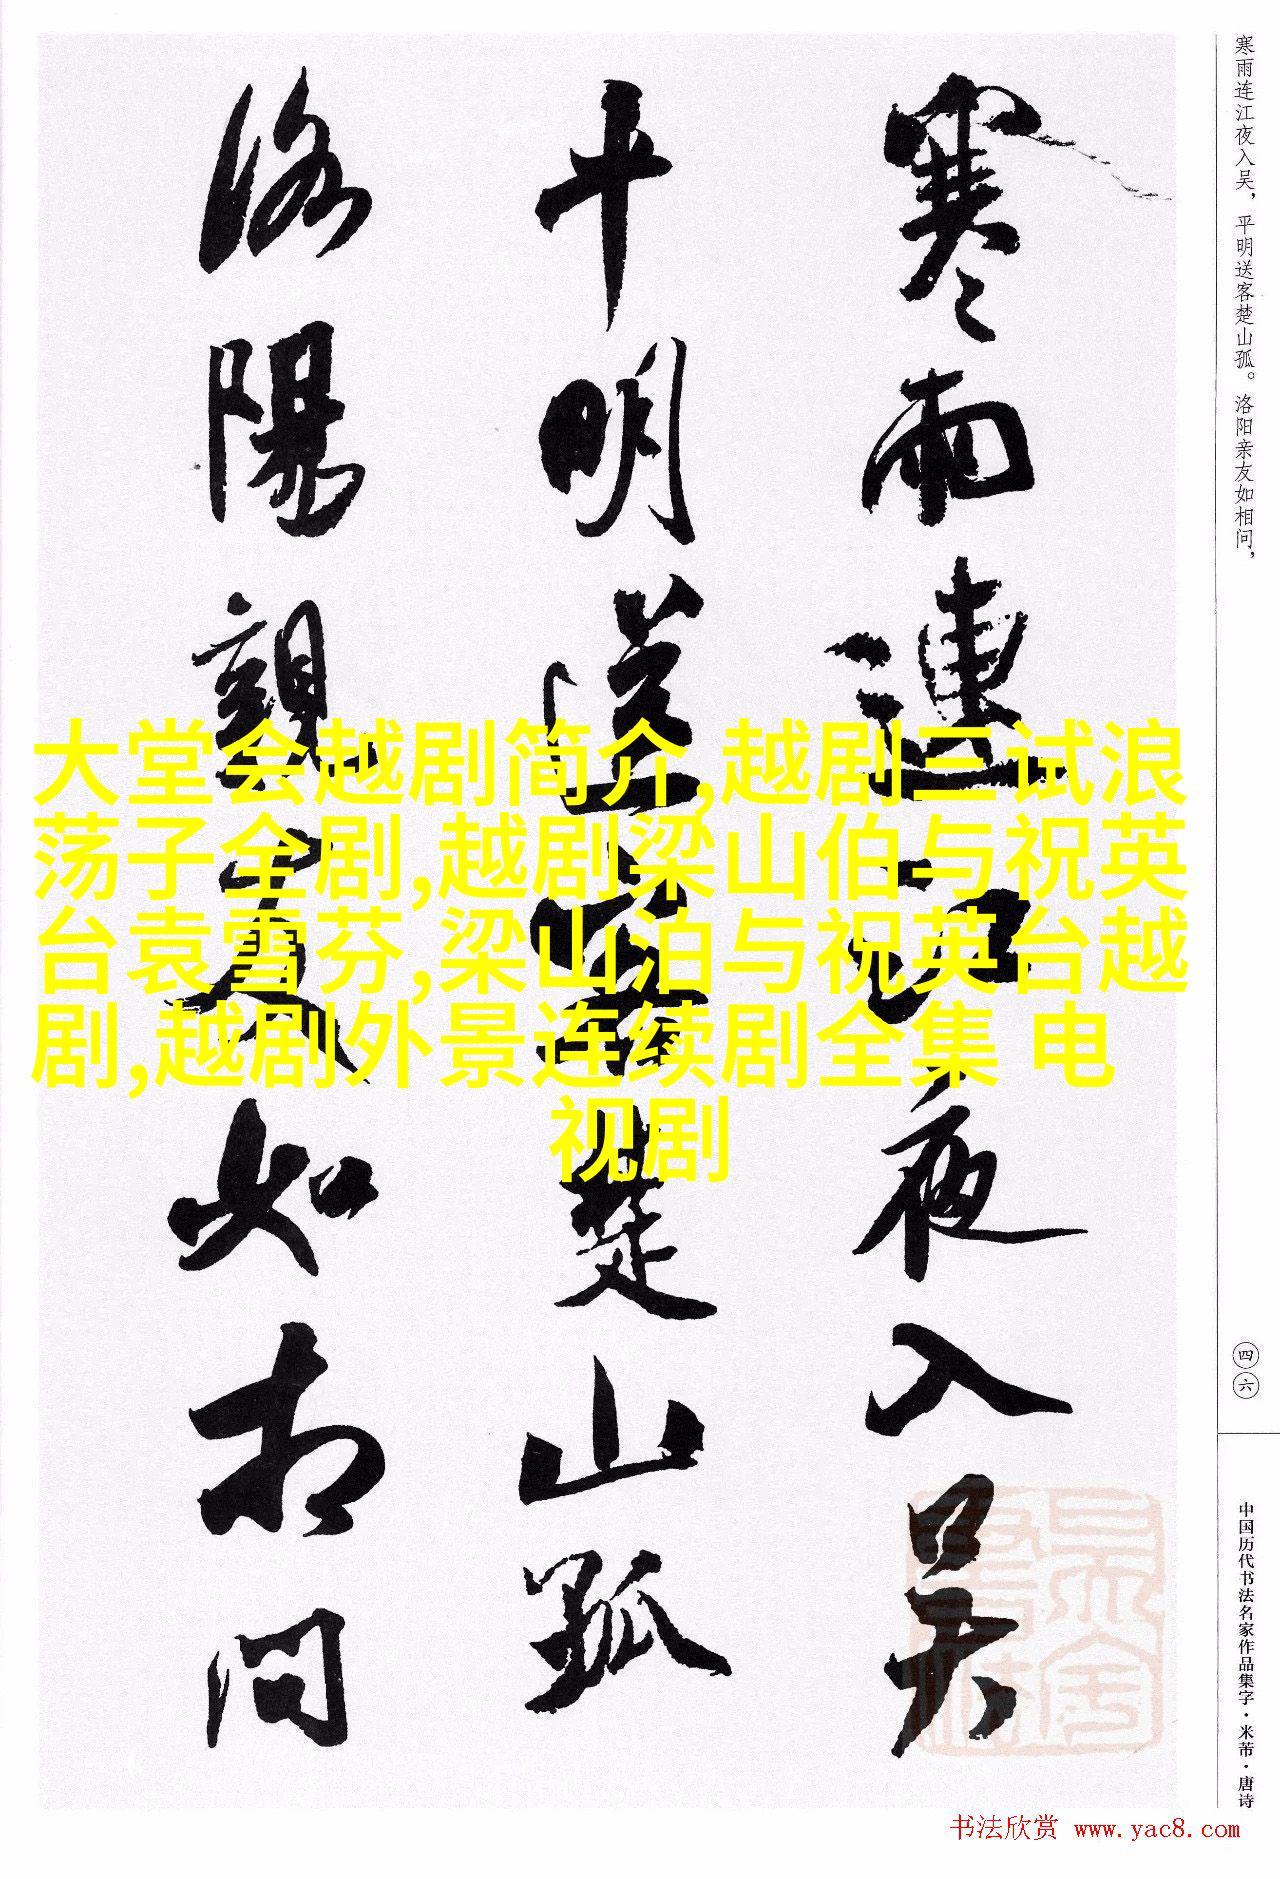 寒雨连江夜入吴，平明送客楚山孤。洛阳亲友如相问，
四六
中国历代书法名家作品集字·米芾·唐诗
寒雨連江夜入吴
平明送客楚山孤
洛陽親友如相问
大堂会越剧简介,越剧三试浪
荡子全剧,越剧梁山伯与祝英
台袁雪芬,梁山泊与祝英台越
剧,越剧外景连续剧全集 电
视剧
书法欣赏 www.yac8.com